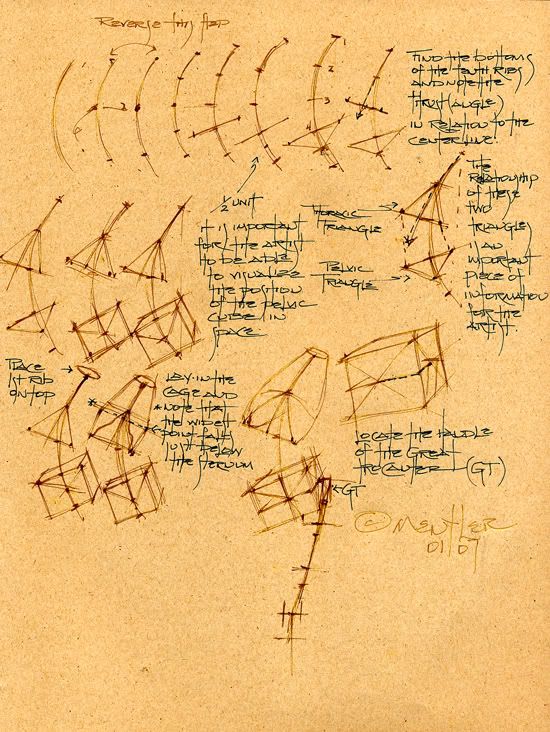 Reverse this step
1
2
3
Find the bottoms
of the tenth ribs
and note the
thrust (angle)
in relation to the
centerline.
1/2 unit
Thoracic
Triangle
Pelvic
Triangle
The
relationship
of these
two
triangles
is an
important
piece of
information
for the
artist.
It is important
for the artist
to be able
to visualize
the position
of the pelvic
cube in
space.
Place
1st rib
on top
Lay in the
cage and
* note that
the widest
point falls
just below
the sternum
Locate the
of the Great
Trocanter (GT)
GT
© Mentler
01/07